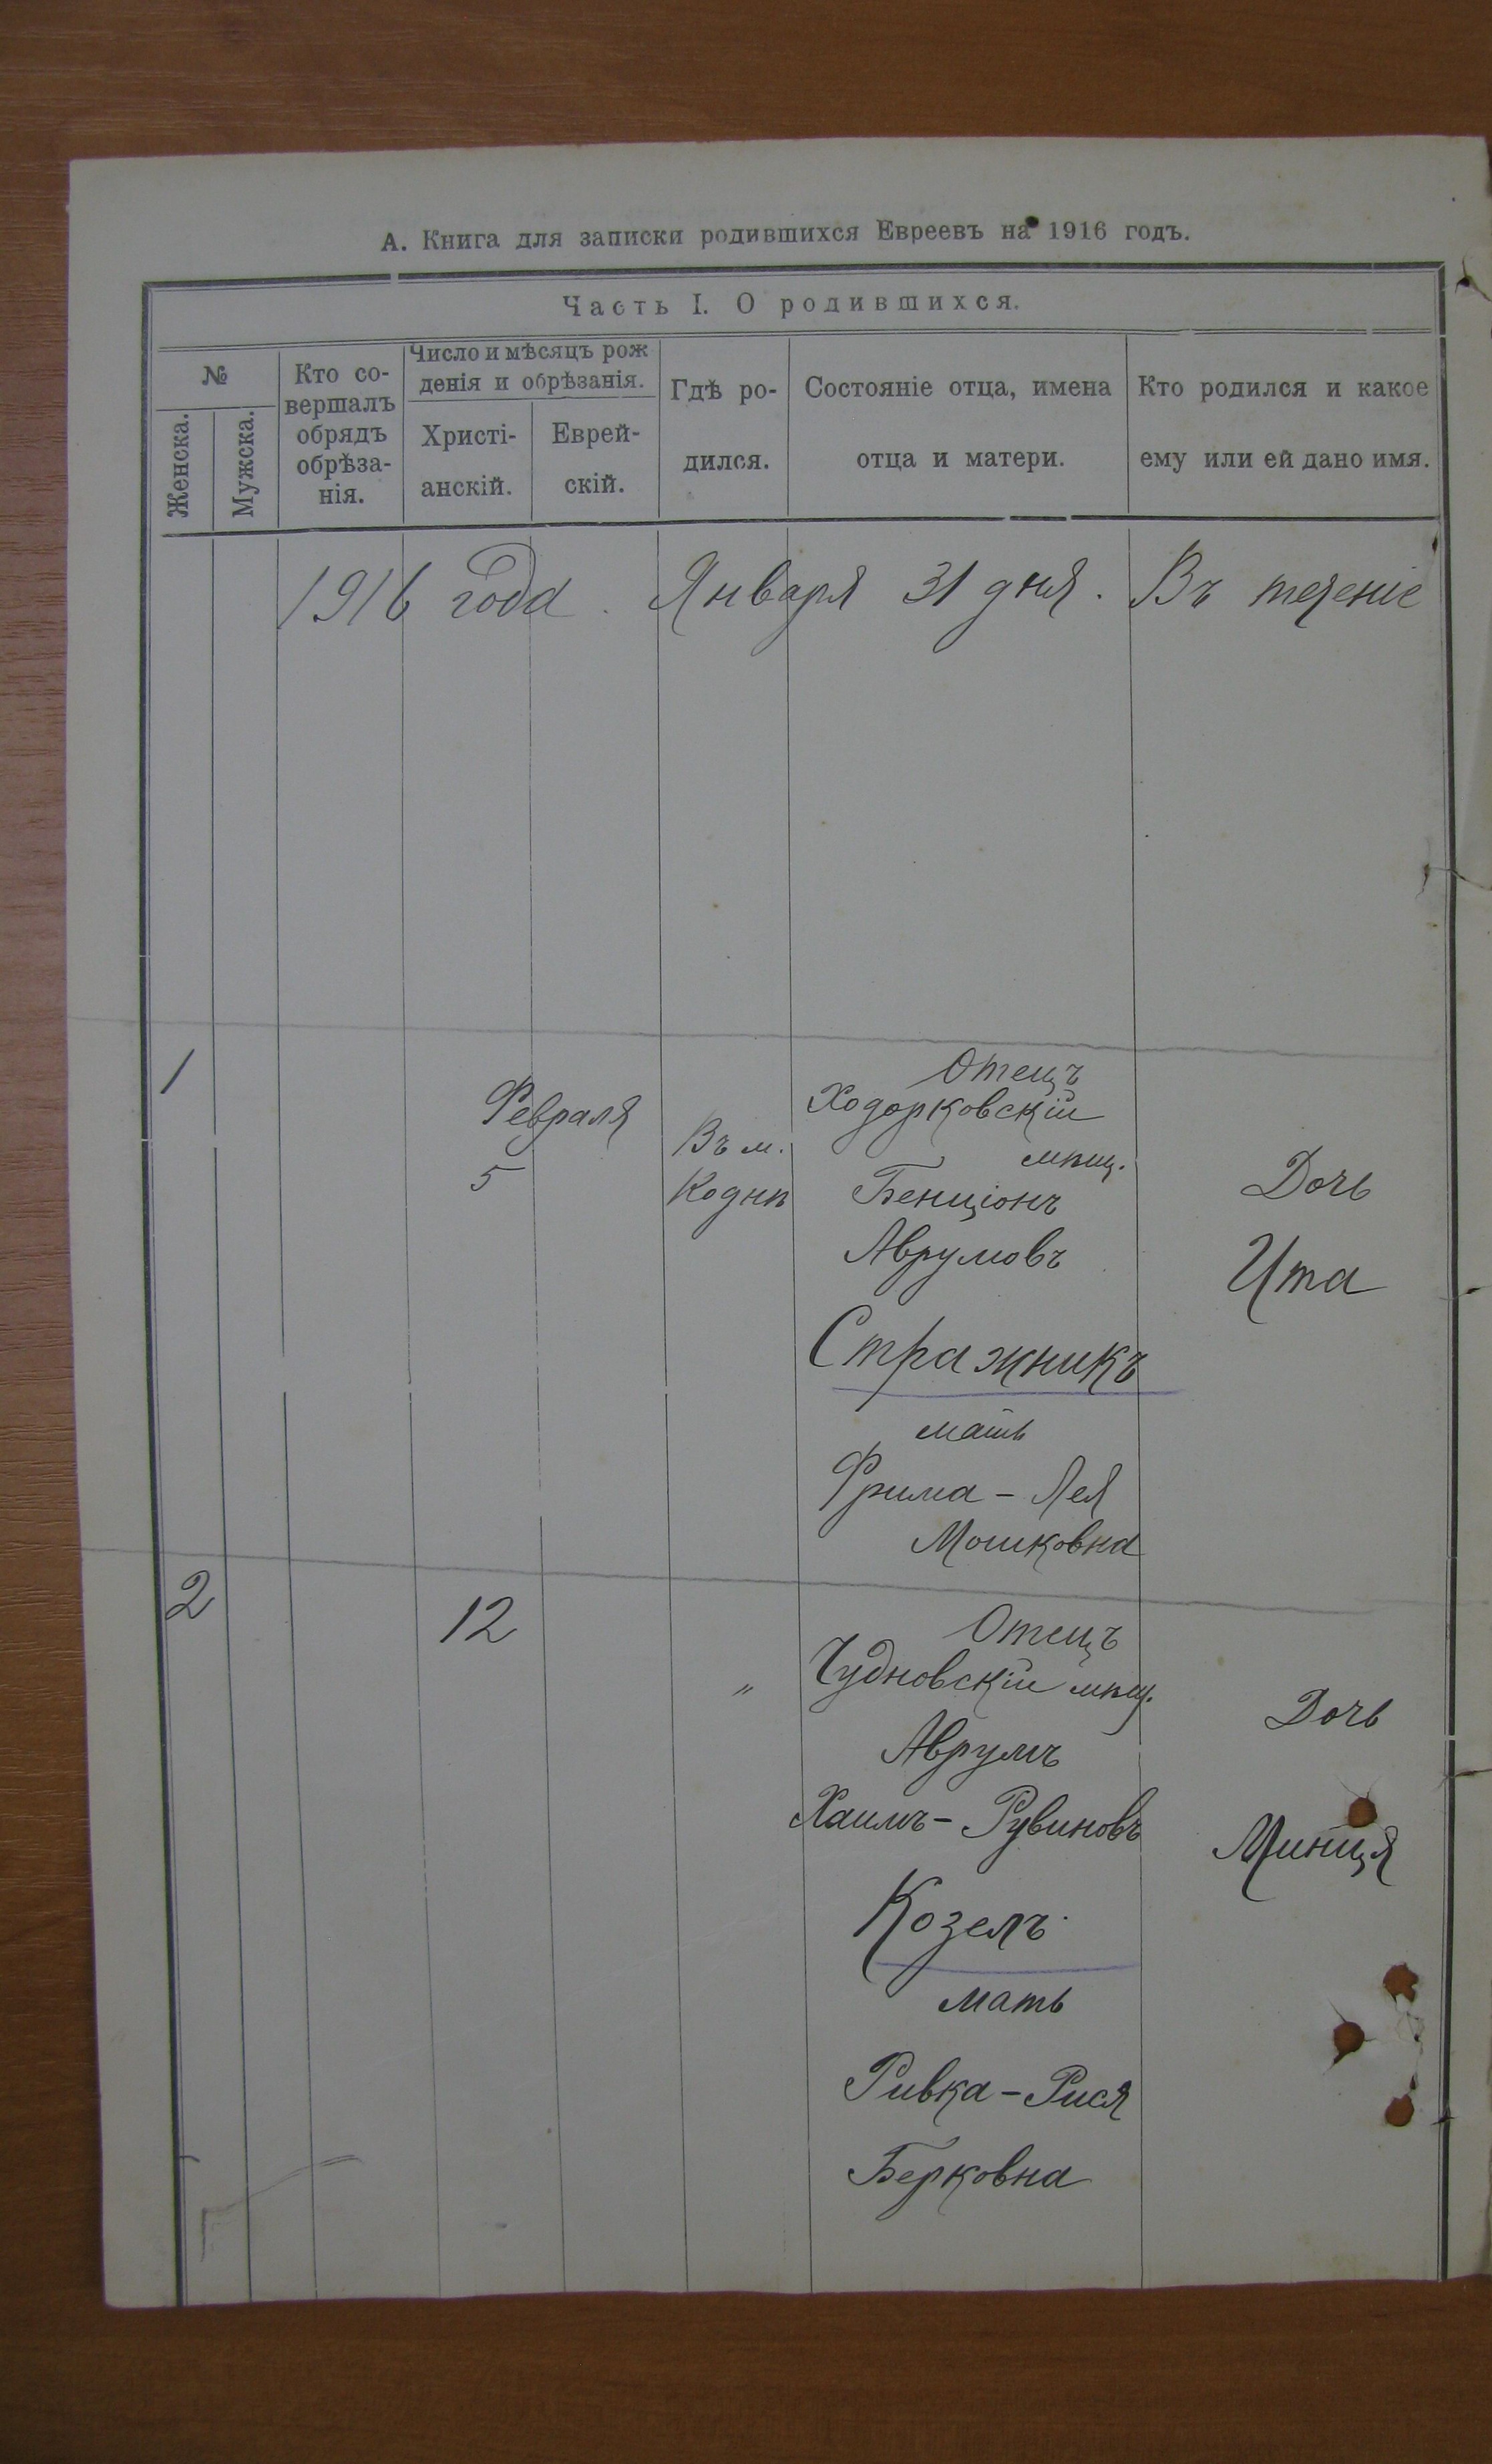 А. Книга для записки родившихся Евреевъ на 1916 годъ.
Часть I. О родившихся.
№
Женска.
Мужска.
Кто со-
вершалъ
обрядъ
обрѣза-
нія.
Число и мѣсяцъ рож
денія и обрѣзанія.
Христі-
анскій.
Еврей-
скій.
Гдѣ ро-
дился.
Состояніе отца, имена
отца и матери.
Кто родился и какое
ему или ей дано имя.
1916 года. Января 31 дня. Въ теченіе
1
Февраля
5
Въ м.
Коднѣ
Отецъ
Ходорковскій
мѣщ.
Бенціонъ
Аврумовъ
Стражникъ
мать
Фрима - Лея
Мошковна
Дочь
Ита
2
12
"
Отецъ
Чудновскій мѣщ.
Аврумъ
Хаимъ - Рувиновъ
Козелъ
мать
Ривка - Рися
Берковна
Дочь
Миниця